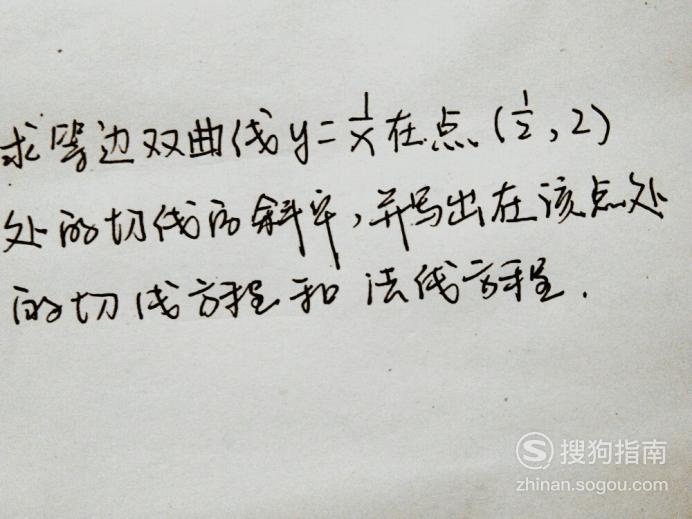 求等边双曲线y=1/x在点(1/2,2)
处的切线的斜率,并写出在该点处
的切线方程和法线方程.
搜狗指南
zhinan.sogou.com